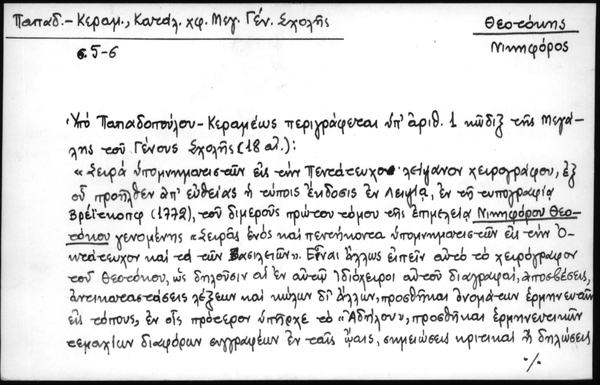 Παπαδ.-Κεραμ., Κατάλ. χφ. Μεγ. Γέν. Σχολῆς
Θεοτόκης
Νικηφόρος
σ. 5-6
Ὑπό Παπαδοπούλου-Κεραμέως περιγράφεται ὑπ' ἀριθ. 1 κῶδιξ τῆς Μεγά-
λης τοῦ Γένους Σχολῆς (18 αἰ.):
«Σειρά ὑπομνηματιστῶν εἰς τήν Πεντάτευχον· λείψανον χειρογράφου, ἐξ
οὗ προῆλθεν ἀπ' εὐθείας ἡ τύποις ἔκδοσις ἐν Λειψίᾳ, ἐν τῇ τυπογραφίᾳ
Βρέϊτκοπφ (1772), τοῦ διμεροῦς πρώτου τόμου τῆς ἐπιμελείᾳ Νικηφόρου Θεο-
τόκου γενομένης «Σειρᾶς ἑνός καί πεντήκοντα ὑπομνηματιστῶν εἰς τήν Ὀ-
κτάτευχον καί τά τῶν Βασιλειῶν». Εἶναι ἄλλως εἰπεῖν αὐτό τό χειρόγραφον
τοῦ Θεοτόκου, ὡς δηλοῦσιν αἱ ἐν αὐτῷ ἰδιόχειροι αὐτοῦ διαγραφαί, ἀποσβέσεις,
ἀντικαταστάσεις λέξεων καί κώλων δι' ἄλλων, προσθῆκαι ὀνομάτων ἑρμηνευτῶν
εἰς τόπους, ἐν οἷς πρότερον ὑπῆρχε τό «Ἀδήλου», προσθῆκαι ἑρμηνευτικῶν
τεμαχίων διαφόρων συγγραφέων ἐν ταῖς ᾤαις, σημειώσεις κριτικαί ἤ δηλώσεις
./.